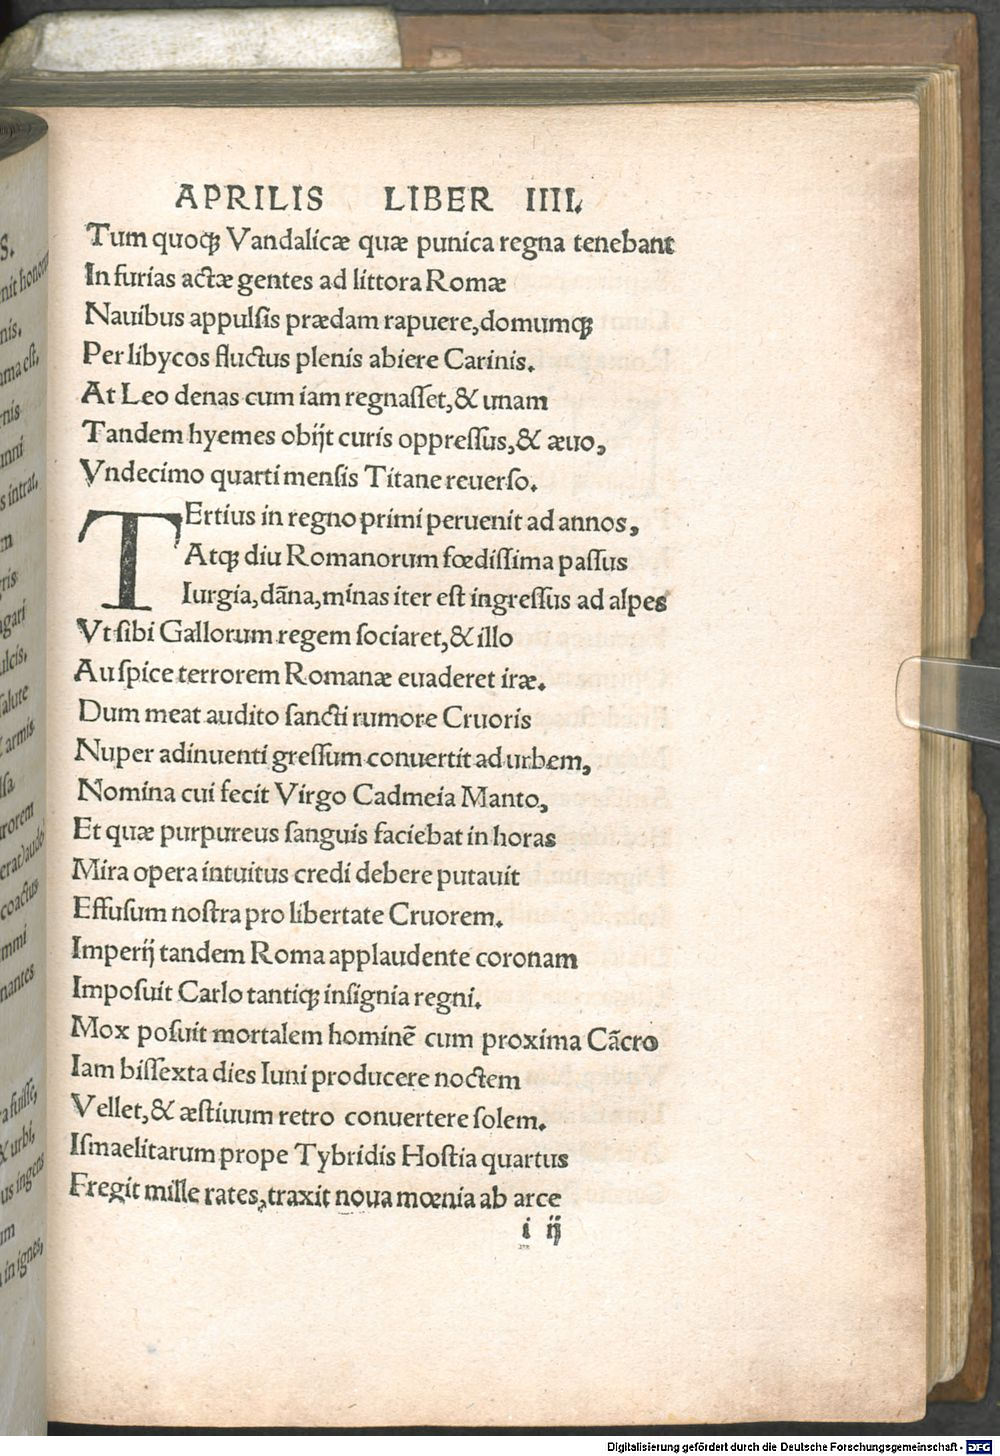 APRILIS LIBER IIII.
Tum quoqꝫ Vandalicæ quæ punica regna tenebant
In furias actæ gentes ad littora Romæ
Nauibus appulſis prædam rapuere, domumqꝫ
Per libycos fluctus plenis abiere Carinis.
At Leo denas cum iam regnaſſet, & unam
Tandem hyemes obijt curis oppreſſus, & æuo,
Vndecimo quarti menſis Titane reuerſo.
TErtius in regno primi peruenit ad annos,
Atqꝫ diu Romanorum fœdiſſima paſſus
Iurgia, dāna, minas iter eſt ingreſſus ad alpes
Vt ſibi Gallorum regem ſociaret, & illo
Auſpice terrorem Romanæ euaderet iræ.
Dum meat audito ſancti rumore Cruoris
Nuper adinuenti greſſum conuertit ad urbem,
Nomina cui fecit Virgo Cadmeia Manto,
Et quæ purpureus ſanguis faciebat in horas
Mira opera intuitus credi debere putauit
Effuſum noſtra pro libertate Cruorem.
Imperij tandem Roma applaudente coronam
Impoſuit Carlo tantiqꝫ inſignia regni.
Mox poſuit mortalem hominē cum proxima Cācro
Iam biſſexta dies Iuni producere noctem
Vellet, & æſtiuum retro conuertere ſolem.
Iſmaelitarum prope Tybridis Hoſtia quartus
Fregit mille rates, traxit noua mœnia ab arce
i ij
Digitalisierung gefördert durch die Deutsche Forschungsgemeinschaft - DFG